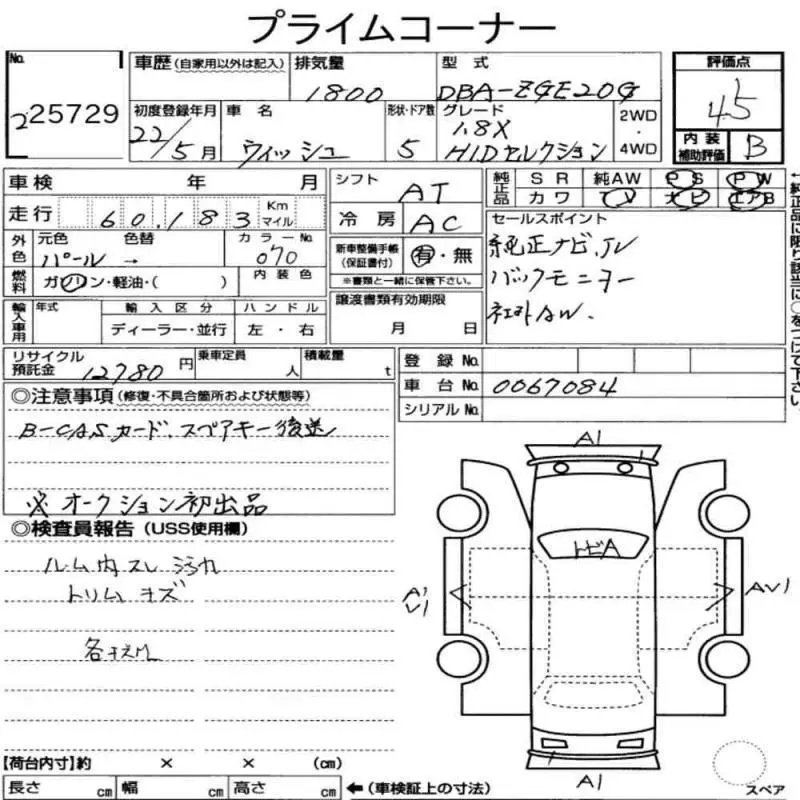 プライムコーナー
No. 225729
車歴 (自家用以外は記入)
排気量 1800
型式 DBA-ZGE20G
評価点 4.5
初度登録年月 22/5月
車名 ウィッシュ
形状・ドア数 5
グレード 1.8X HIDセレクション
2WD・4WD
内装補助評価 B
車検 年 月
シフト AT
純正品 SR 純AW PS PW
カワ TV ナビ エアB
走行 60,183 Km マイル
冷房 AC
セールスポイント
純正ナビ、TV
バックモニター
社外AW.
外色 元色 パール 色替 → カラーNo. 070
新車整備手帳(保証書付) 有・無
※書類と一緒に保管下さい。
燃料 ガソリン・軽油・( ) 内装色
譲渡書類有効期限 月 日
輸入車用 年式 輸入区分 ディーラー・並行 ハンドル 左・右
リサイクル預託金 12780円 乗車定員 人 積載量 t
登録No.
車台No. 0067084
シリアルNo.
◎注意事項 (修復・不具合箇所および状態等)
B-CASカード、スペアキー後送
※オークション初出品
◎検査員報告 (USS使用欄)
ルーム内スレ 汚れ
トリム キズ
A1
トビA
A1 U1
AU1
A1
スペア
【荷台内寸】約 × × (cm)
長さ cm 幅 cm 高さ cm ←(車検証上の寸法)